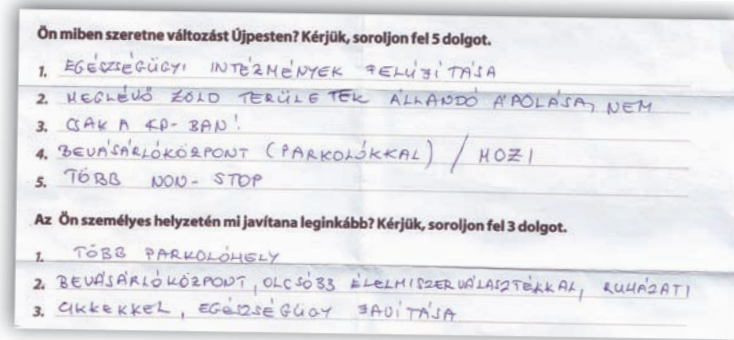 Ön miben szeretne változást Újpesten? Kérjük, soroljon fel 5 dolgot.
1. EGÉSZSÉGÜGYI INTÉZMÉNYEK FELÚJÍTÁSA
2. MEGLÉVŐ ZÖLD TERÜLETEK ÁLLANDÓ ÁPOLÁSA, NEM
3. CSAK A KP-BAN!
4. BEVÁSÁRLÓKÖZPONT (PARKOLÓKKAL) / MOZI
5. TÖBB NON-STOP
Az Ön személyes helyzetén mi javítana leginkább? Kérjük, soroljon fel 3 dolgot.
1. TÖBB PARKOLÓHELY
2. BEVÁSÁRLÓKÖZPONT, OLCSÓBB ÉLELMISZERVÁLASZTÉKKAL, RUHÁZATI
3. CIKKEKKEL, EGÉSZSÉGÜGY JAVÍTÁSA